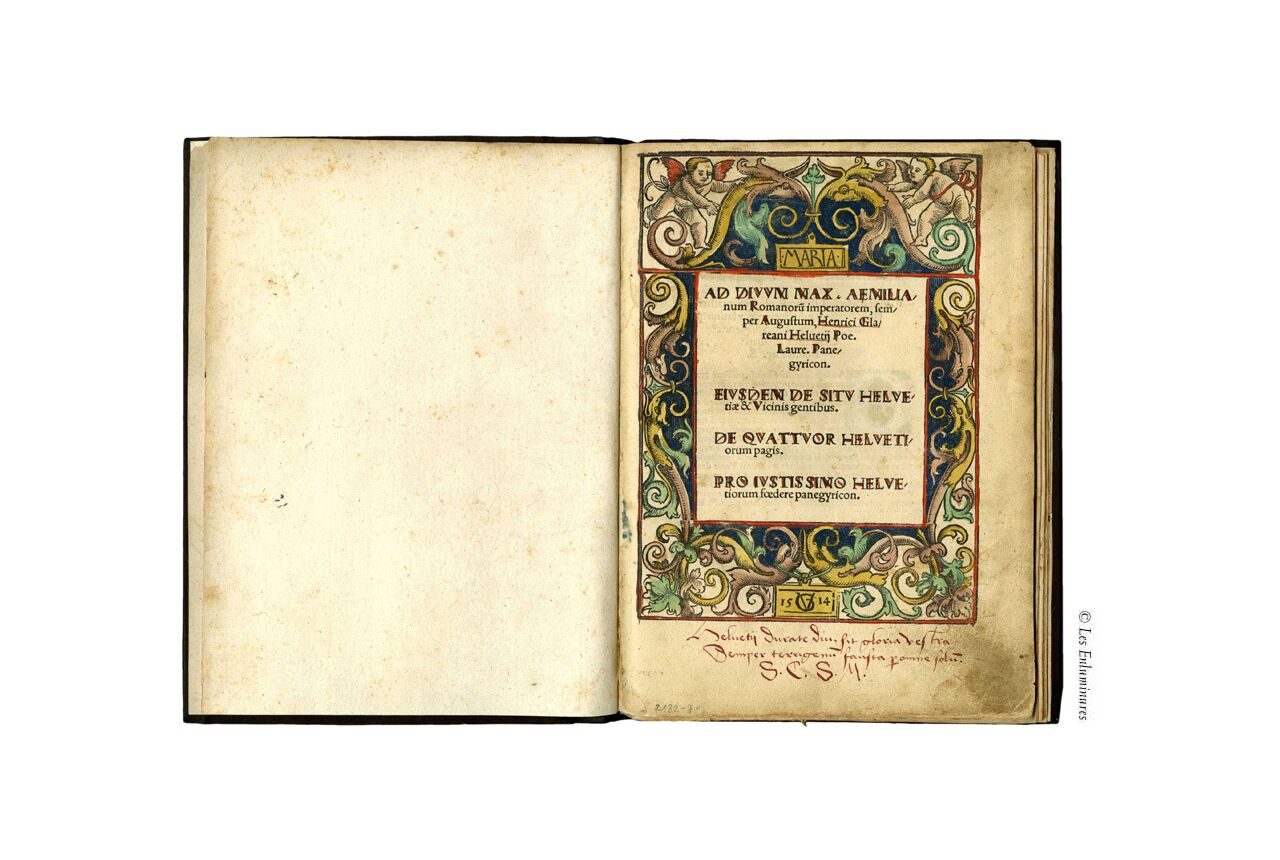 ·MARIA·
AD DIVVM MAX. AEMILIA-
num Romanorū imperatorem, sem-
per Augustum, Henrici Gla-
reani Heluetij Poe.
Laure. Pane-
gyricon.
EIVSDEM DE SITV HELVE-
tiæ & Vicinis gentibus.
DE QVATTVOR HELVETI-
orum pagis.
PRO IVSTISSIMO HELVE-
tiorum fœdere panegyricon.
15 VG 14
Heluetij durate diu: sit gloria vestra
Semper terrigenum fausta p omne solū.
S. C. S. M.
2182-7
© Les Enluminures